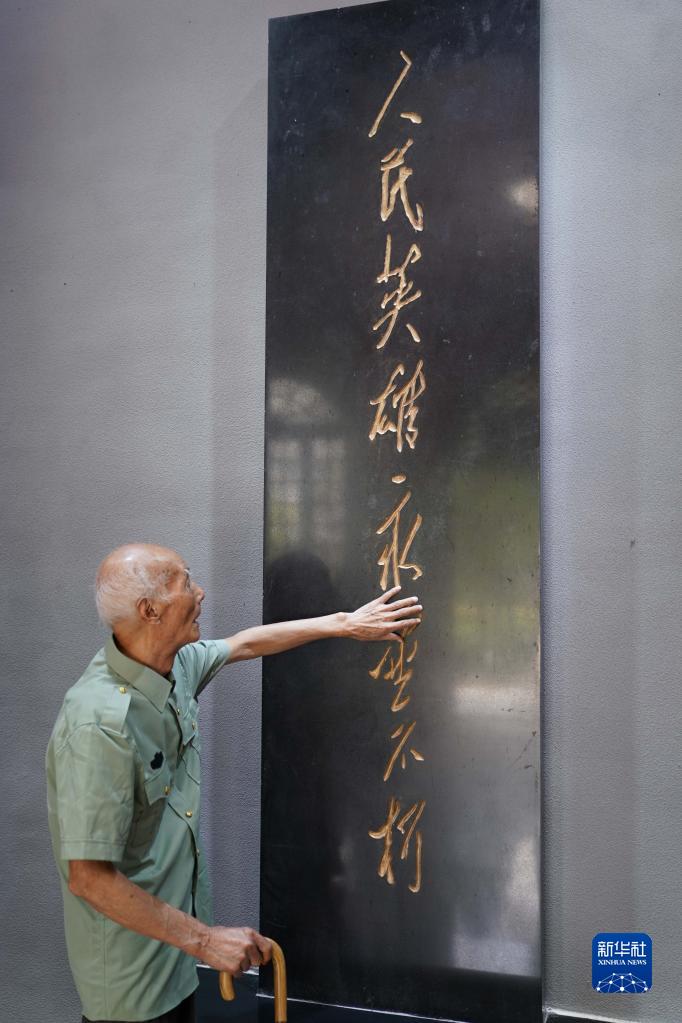 人民英雄永垂不朽
新华社
XINHUA NEWS